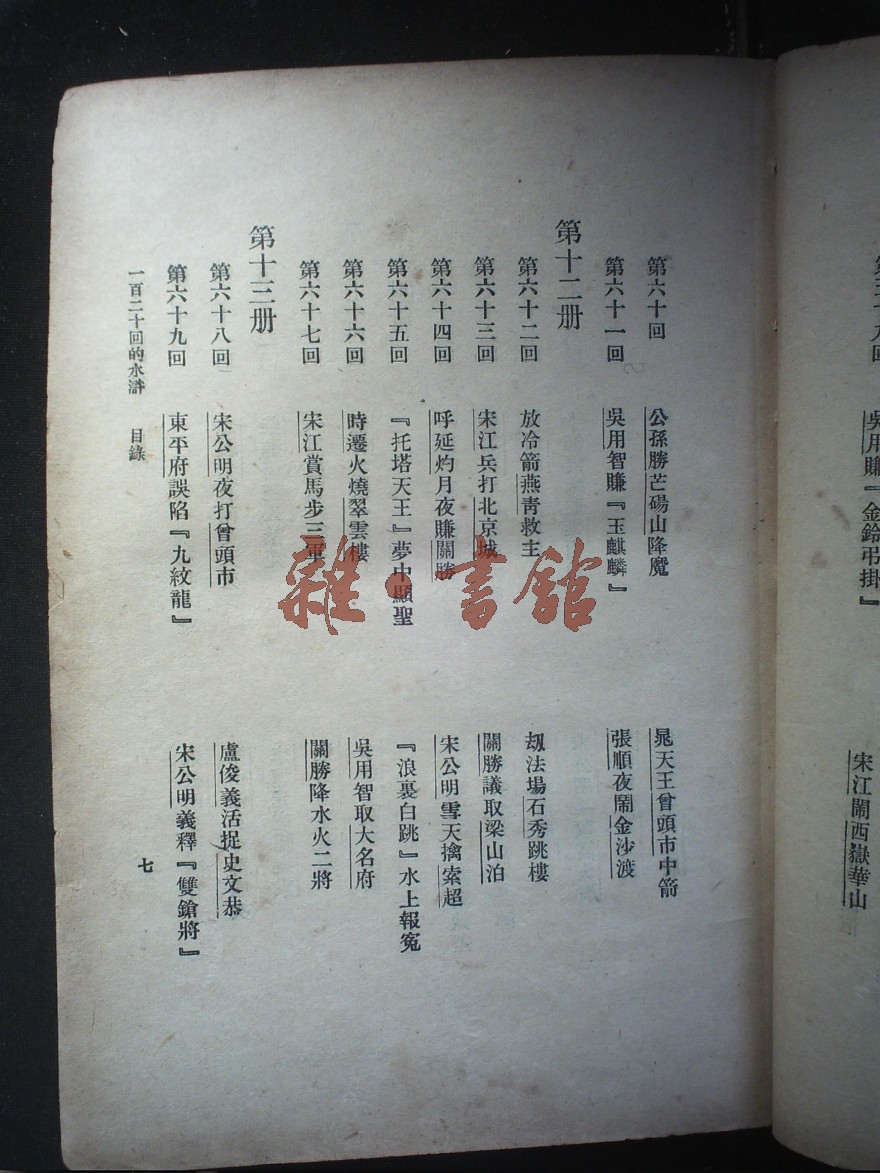 第六十回 公孫勝芒碭山降魔 晁天王曾頭市中箭
第六十一回 吳用智賺『玉麒麟』 張順夜鬧金沙渡
第十二册
第六十二回 放冷箭燕青救主 刼法場石秀跳樓
第六十三回 宋江兵打北京城 關勝議取梁山泊
第六十四回 呼延灼月夜賺關勝 宋公明雪天擒索超
第六十五回 『托塔天王』夢中顯聖 『浪裏白跳』水上報寃
第六十六回 時遷火燒翠雲樓 吳用智取大名府
第六十七回 宋江賞馬步三軍 關勝降水火二將
第十三册
第六十八回 宋公明夜打曾頭市 盧俊義活捉史文恭
第六十九回 東平府誤陷『九紋龍』 宋公明義釋『雙鎗將』
一百二十回的水滸 目錄 七
吳用賺『金鈴弔掛』 宋江鬧西嶽華山
雜·書館